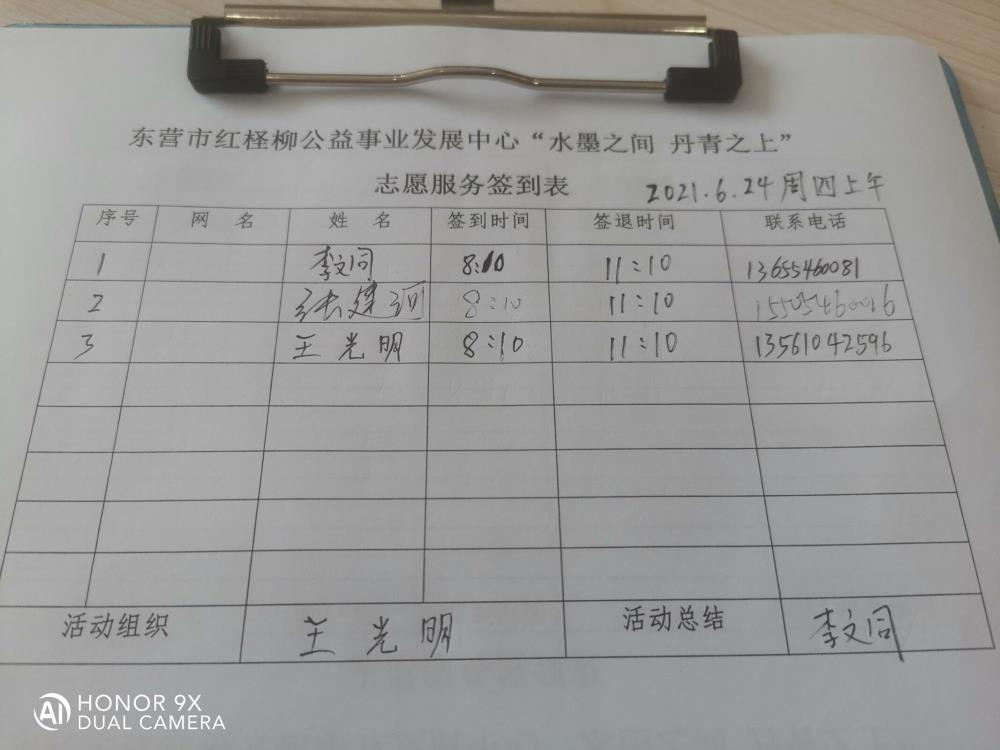 东营市红柽柳公益事业发展中心“水墨之间 丹青之上”
志愿服务签到表 2021.6.24周四上午
序号 网 名 姓 名 签到时间 签退时间 联系电话
1 李文同 8:10 11:10 13655460081
2 张建河 8:10 11:10 15505460016
3 王光明 8:10 11:10 13561042596
活动组织 王光明 活动总结 李文同
HONOR 9X
AI DUAL CAMERA